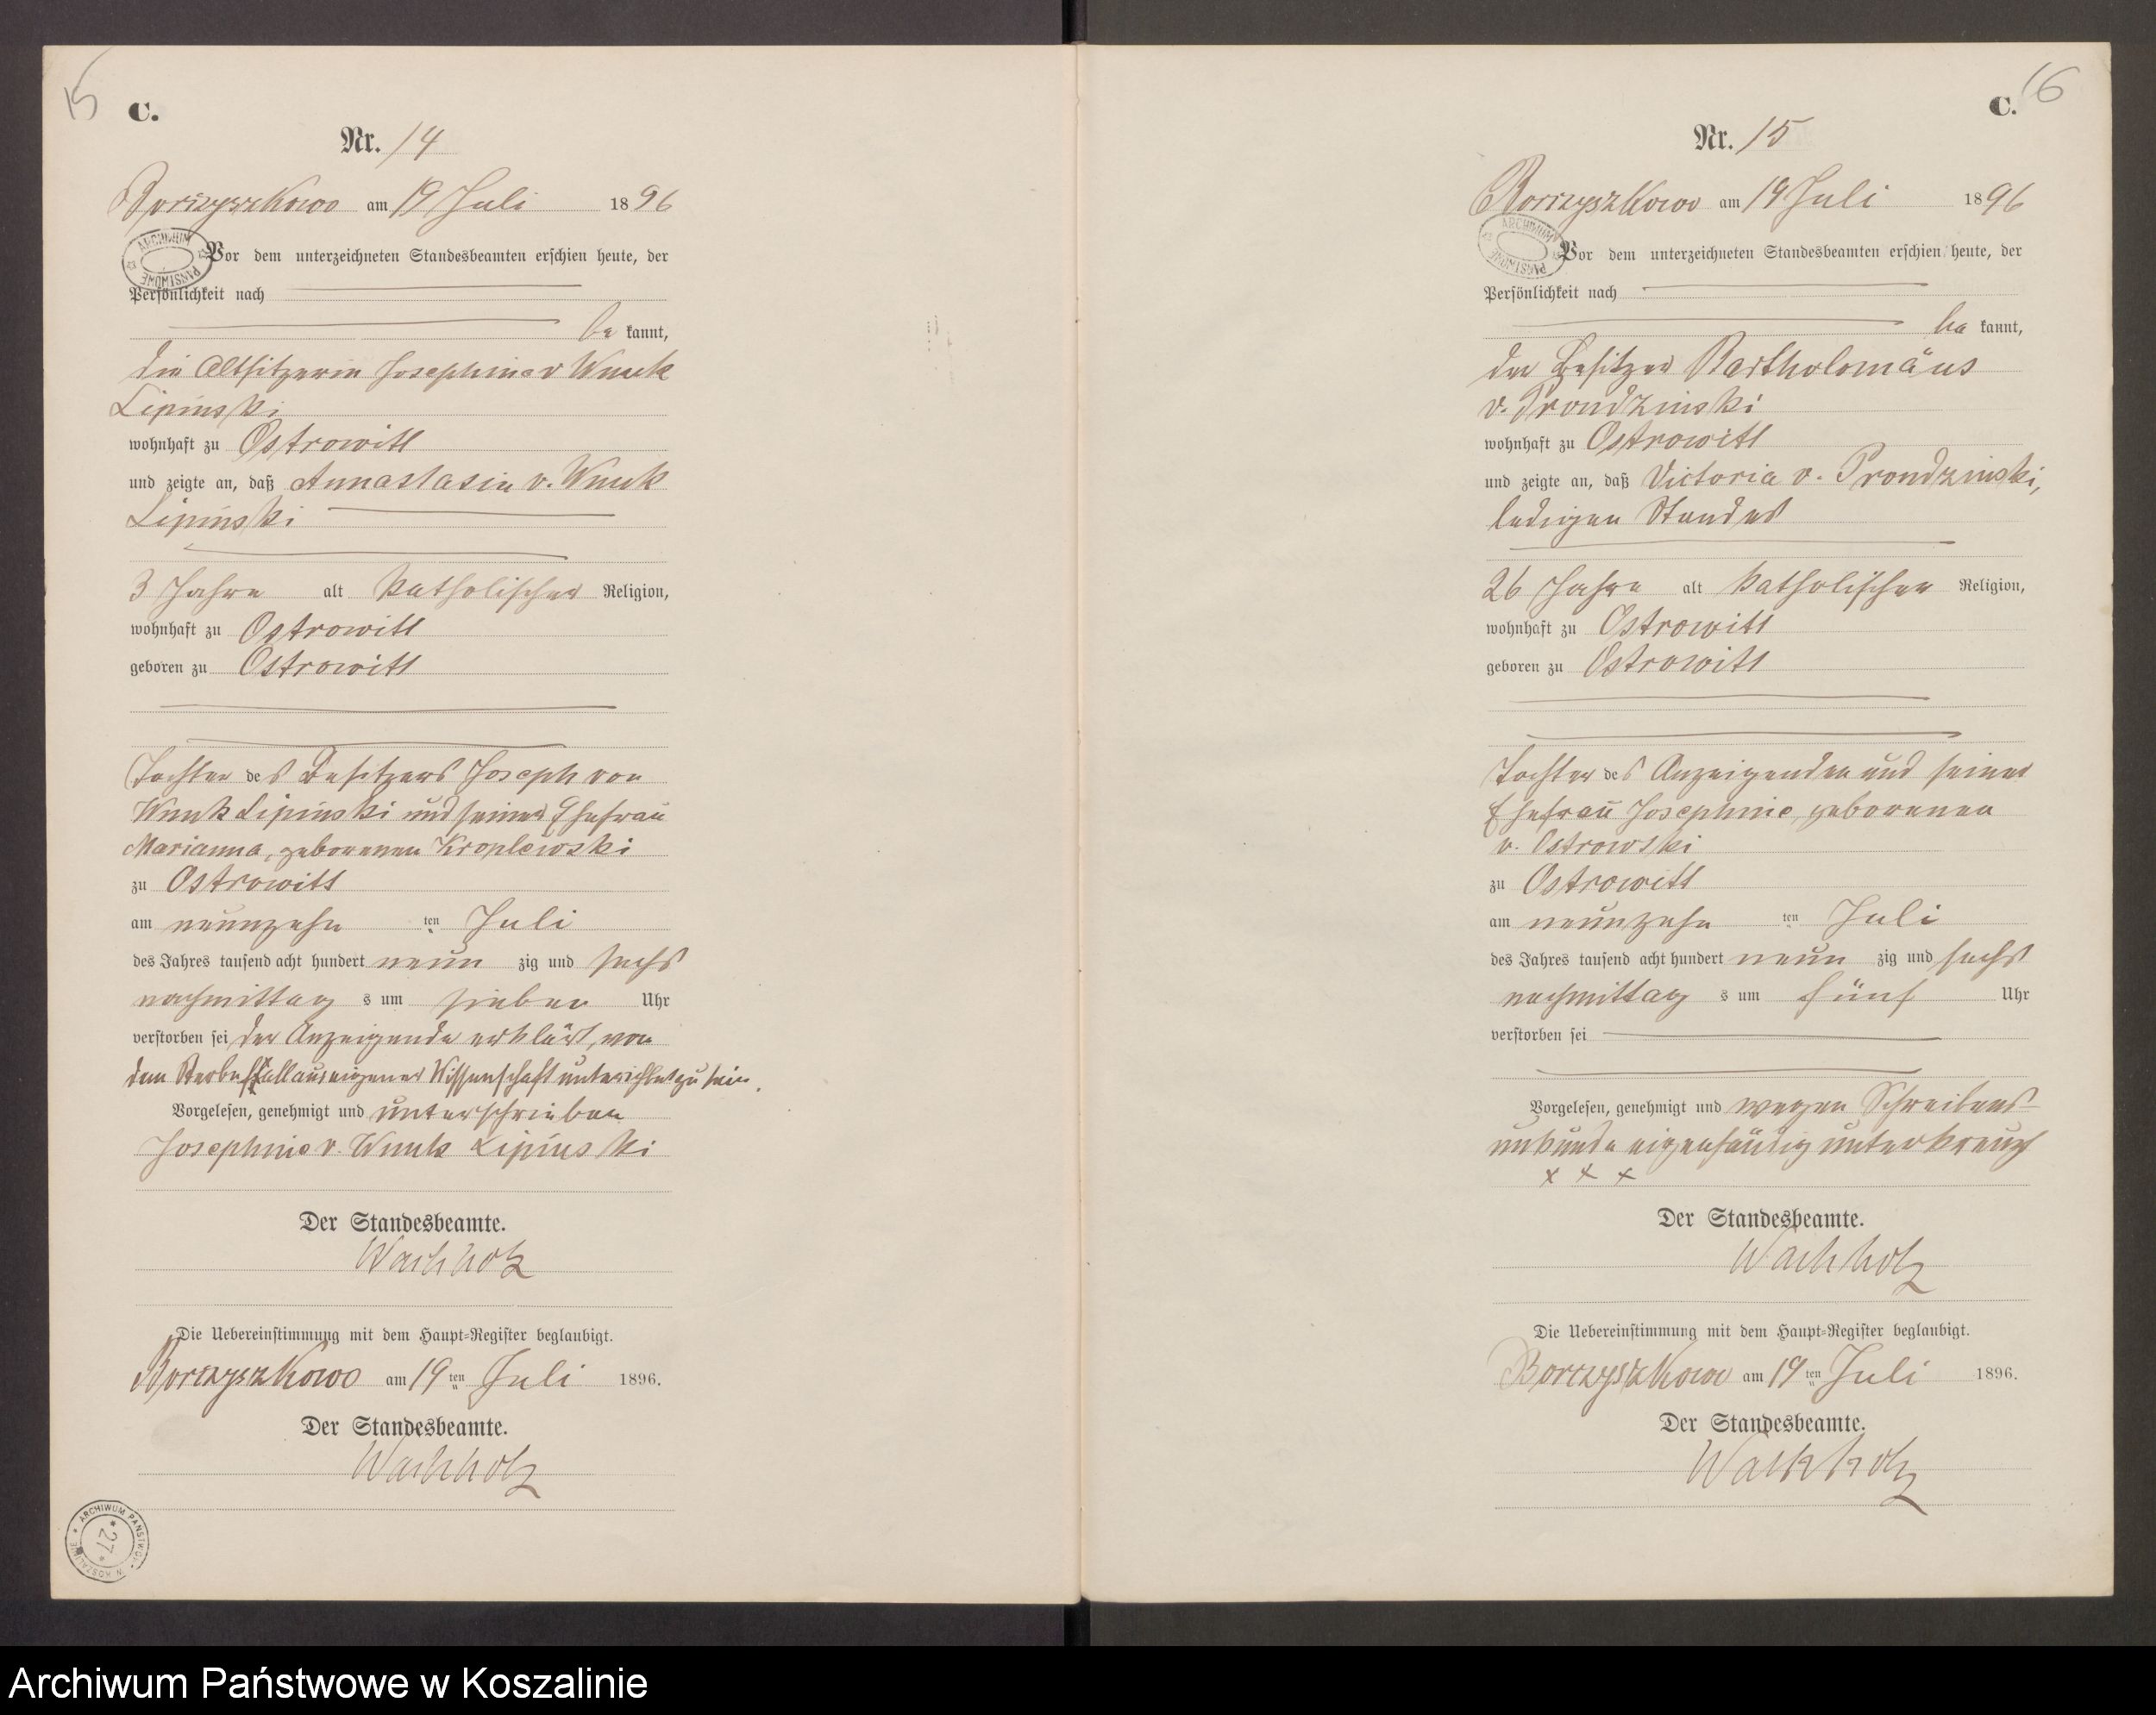 15
C.
Nr. 14
Borzyszkowo am 19 Juli 1896
Vor dem unterzeichneten Standesbeamten erschien heute, der
Persönlichkeit nach
be kannt,
die Altsitzerin Josephine v Wnuk
Lipinski
wohnhaft zu Ostrowitt
und zeigte an, daß Annastasia v. Wnuk
Lipinski
3 Jahre alt katholischer Religion,
wohnhaft zu Ostrowitt
geboren zu Ostrowitt
Tochter des Besitzers Joseph von
Wnuk Lipinski und seiner Ehefrau
Marianna, geborenen Kroplewski
zu Ostrowitt
am neunzehn ten Juli
des Jahres tausend acht hundert neun zig und sechs
nachmittag s um sieben Uhr
verstorben sei der Anzeigende erklärt, von
dem Sterbefall aus eigener Wissenschaft unterichtet zu sein.
Vorgelesen, genehmigt und unterschrieben
Josephine v. Wnuk Lipinski
Der Standesbeamte.
Wachholz
Die Uebereinstimmung mit dem Haupt-Register beglaubigt.
Borzyszkowo am 19 ten Juli 1896.
Der Standesbeamte.
Wachholz
ARCHIWUM PAŃSTWOWE W KOSZALINIE * 27 *
16
C.
Nr. 15
Borzyszkowo am 19 Juli 1896
ARCHIWUM PAŃSTWOWE
Vor dem unterzeichneten Standesbeamten erschien heute, der
Persönlichkeit nach
be kannt,
der Besitzer Bartholomäus
v. Prondzinski
wohnhaft zu Ostrowitt
und zeigte an, daß Victoria v. Prondzinski,
ledigen Standes
26 Jahre alt katholischer Religion,
wohnhaft zu Ostrowitt
geboren zu Ostrowitt
Tochter des Anzeigenden und seiner
Ehefrau Josephine, geborenen
v. Ostrowski
zu Ostrowitt
am neunzehn ten Juli
des Jahres tausend acht hundert neun zig und sechs
nachmittag s um fünf Uhr
verstorben sei
Vorgelesen, genehmigt und wegen Schreibens-
unkunde eigenhändig unterkreuzt
x x x
Der Standesbeamte.
Wachholz
Die Uebereinstimmung mit dem Haupt-Register beglaubigt.
Borzyszkowo am 19 ten Juli 1896.
Der Standesbeamte.
Wachholz
Archiwum Państwowe w Koszalinie